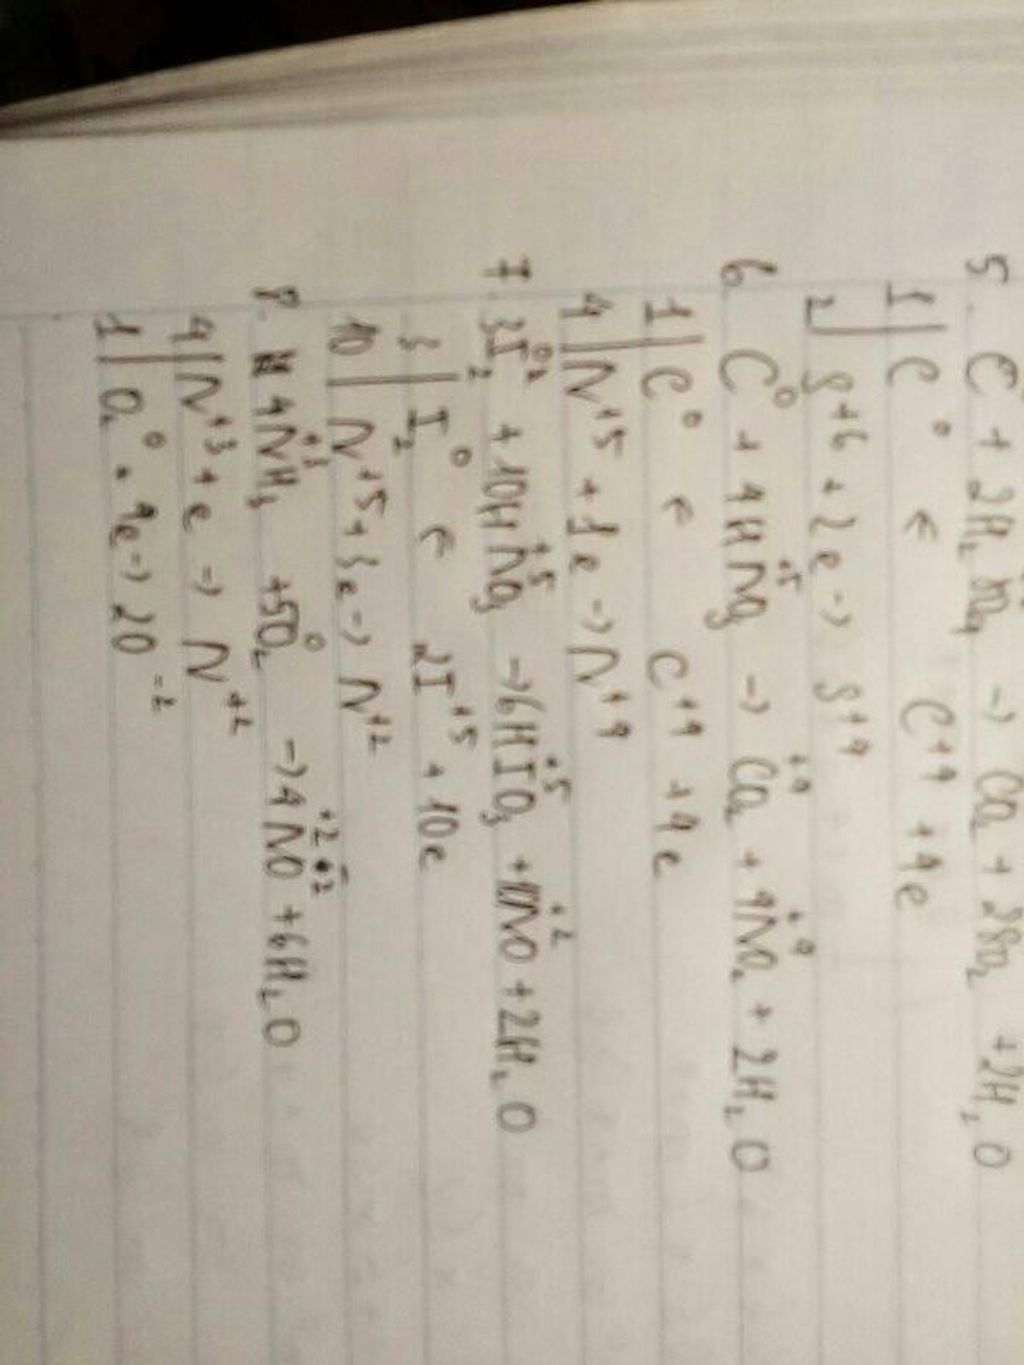 5. C + 2H₂SO₄ → CO₂ + 2SO₂ + 2H₂O
1 | C⁰ ← C⁺⁴ + 4e
2 | S⁺⁶ + 2e → S⁺⁴
6. C⁰ + 4HN⁺⁵O₃ → C⁺⁴O₂ + 4N⁺⁴O₂ + 2H₂O
1 | C⁰ ← C⁺⁴ + 4e
4 | N⁺⁵ + 1e → N⁺⁴
7. 3I₂⁰ + 10HN⁺⁵O₃ → 6HI⁺⁵O₃ + 10N⁺²O + 2H₂O
3 | I₂⁰ ← 2I⁺⁵ + 10e
10 | N⁺⁵ + 3e → N⁺²
8. 4N⁺³H₃ + 5O₂⁰ → 4N⁺²O⁻² + 6H₂O
4 | N⁺³ + e → N⁺²
1 | O₂⁰ + 4e → 2O⁻²